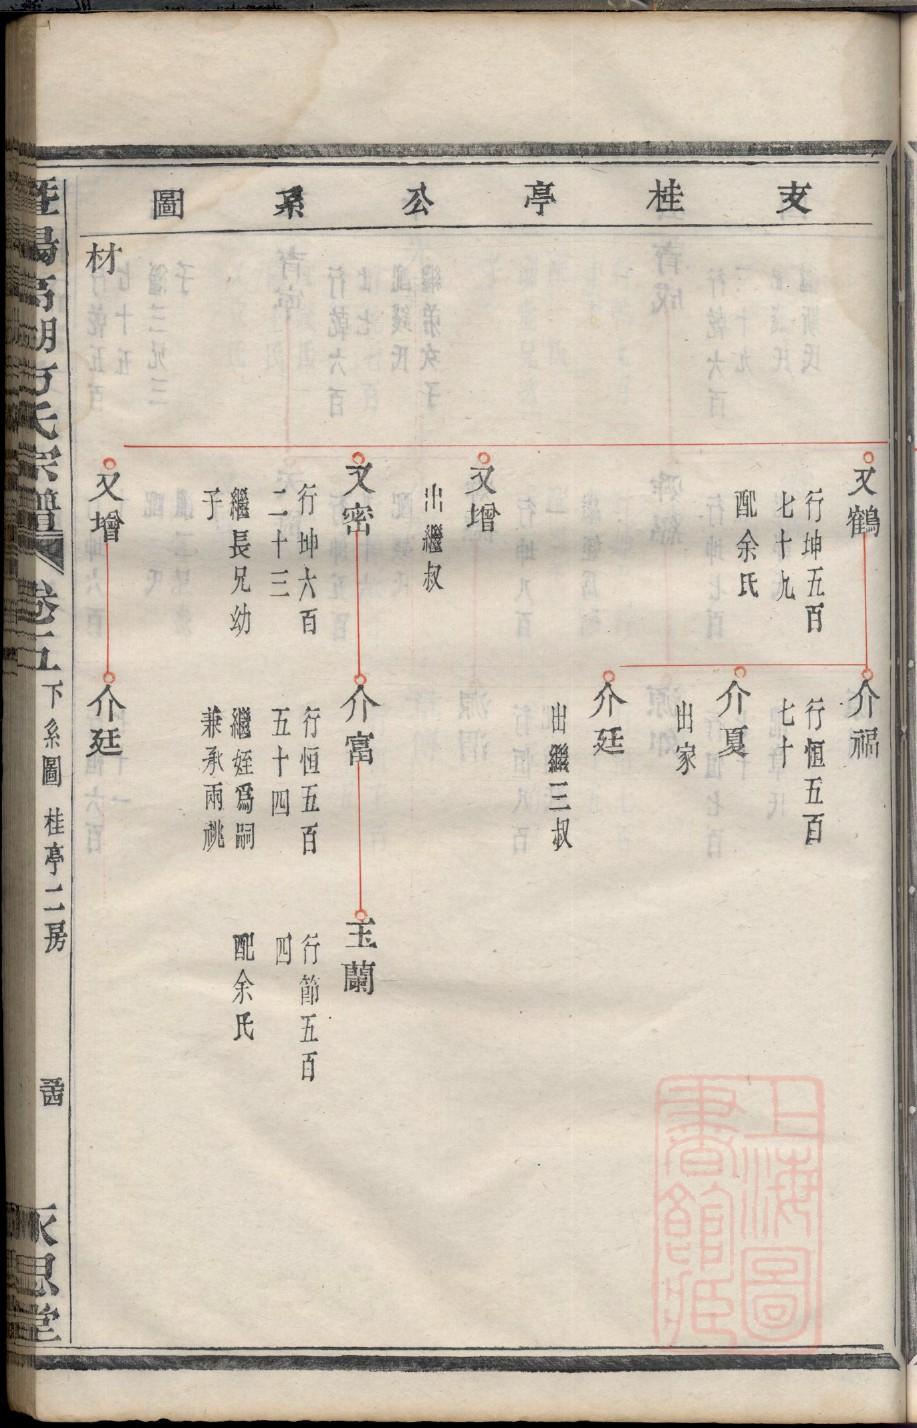 支桂亭公系圖
又鶴
行坤五百
七十九
配余氏
介福
行恒五百
七十
介夏
出家
介廷
出繼三叔
又增
出繼叔
又密
行坤六百
二十三
繼長兄幼
子
介富
行恒五百
五十四
繼姪爲嗣
兼承兩祧
玉蘭
行節五百
四
配余氏
材
又增
介廷
暨陽高湖方氏宗譜
卷二五
下系圖
桂亭二房
永思堂
上海圖
書館藏